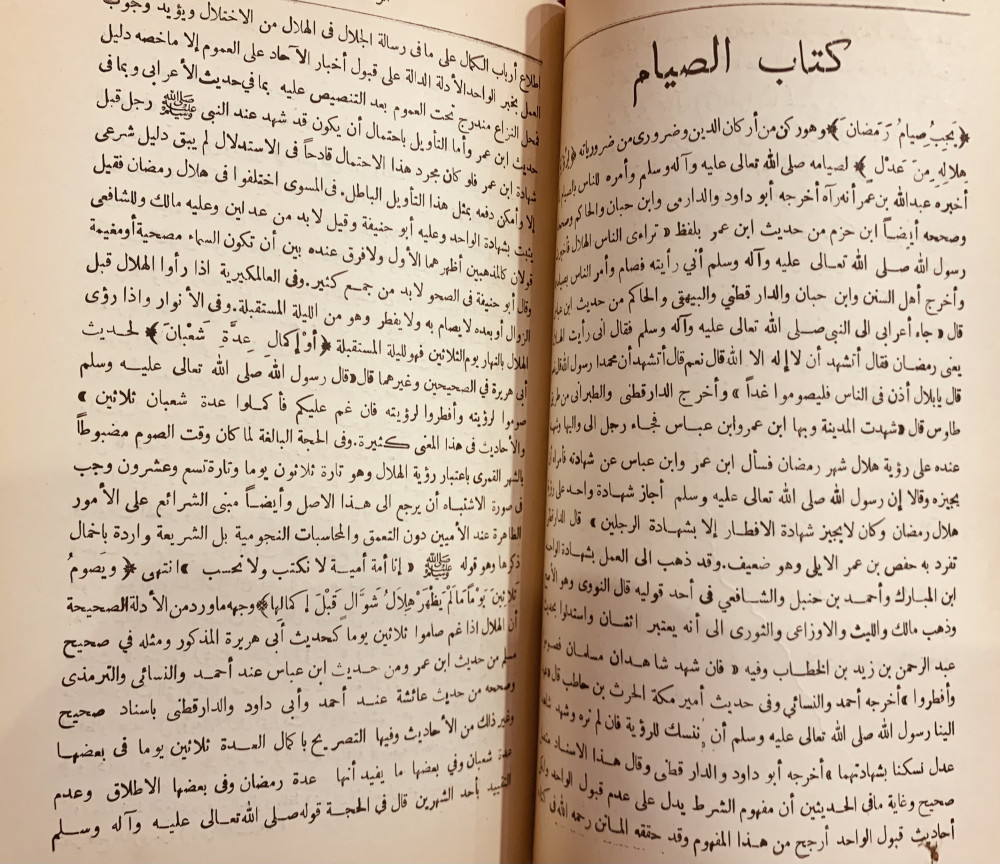 كتاب الصيام
﴿يَجِبُ صِيَامُ رَمَضَانَ﴾ وهو ركن من أركان الدين وضرورى من ضرورياته
هِلَالِهِ مِنْ عَدْلٍ﴾ لصيامه صلى الله تعالى عليه وآله وسلم وأمره للناس بالصيام
أخبره عبدالله بن عمر أنه رآه أخرجه أبو داود والدارمى وابن حبان والحاكم وصححه
وصححه أيضاً ابن حزم من حديث ابن عمر بلفظ « تراءى الناس الهلال فأخبرت
رسول الله صلى الله تعالى عليه وآله وسلم أني رأيته فصام وأمر الناس بصيامه
وأخرج أهل السنن وابن حبان والدار قطني والبيهقي والحاكم من حديث ابن عباس
قال « جاء أعرابى الى النبى صلى الله تعالى عليه وآله وسلم فقال انى رأيت الهلال
يعنى رمضان فقال أتشهد أن لا إله الا الله قال نعم قال أتشهد أن محمدا رسول الله قال نعم
قال يابلال أذن فى الناس فليصوموا غداً » وأخرج الدارقطنى والطبرانى من طريق
طاوس قال « شهدت المدينة وبها ابن عمر وابن عباس فجاء رجل الى واليها وشهد
عنده على رؤية هلال شهر رمضان فسأل ابن عمر وابن عباس عن شهادته فأمراه أن
يجيزه وقالا إن رسول الله صلى الله تعالى عليه وسلم أجاز شهادة واحد على رؤية
هلال رمضان وكان لايجيز شهادة الافطار إلا بشهادة الرجلين » قال الدارقطنى
تفرد به حفص بن عمر الايلى وهو ضعيف. وقد ذهب الى العمل بشهادة الواحد
ابن المبارك وأحمد بن حنبل والشافعي فى أحد قوليه قال النووى وهو الأصح
وذهب مالك والليث والاوزاعى والثورى الى أنه يعتبر اثنان واستدلوا بحديث
عبد الرحمن بن زيد بن الخطاب وفيه « فان شهد شاهدان مسلمان فصوموا
وأفطروا » أخرجه أحمد والنسائي وفى حديث أمير مكة الحرث بن حاطب قال « عهد
الينا رسول الله صلى الله تعالى عليه وسلم أن ننسك للرؤية فان لم نره وشهد شاهدا
عدل نسكنا بشهادتهما » أخرجه أبو داود والدار قطنى وقال هذا الاسناد متصل
صحيح وغاية مافى الحديثين أن مفهوم الشرط يدل على عدم قبول الواحد ولكن
أحاديث قبول الواحد أرجح من هذا المفهوم وقد حققه الماتن رحمه الله فى كتابه
اطلاع أرباب الكمال على مافى رسالة الجلال فى الهلال من الاختلال ويؤيد وجوب
العمل بخبر الواحد الأدلة الدالة على قبول أخبار الآحاد على العموم إلا ماخصه دليل
فمحل النزاع مندرج تحت العموم بعد التنصيص عليه بما في حديث الأعرابى وبما فى
حديث ابن عمر وأما التأويل باحتمال أن يكون قد شهد عند النبى ﷺ رجل قبل
شهادة ابن عمر فلو كان مجرد هذا الاحتمال قادحاً فى الاستدلال لم يبق دليل شرعى
إلا وأمكن دفعه بمثل هذا التأويل الباطل. فى المسوى اختلفوا فى هلال رمضان فقيل
يثبت بشهادة الواحد وعليه أبو حنيفة وقيل لابد من عدلين وعليه مالك وللشافعى
قولان كالمذهبين أظهرهما الأول ولافرق عنده بين أن تكون السماء مصحية أومغيمة
وقال أبو حنيفة فى الصحو لابد من جمع كثير. وفى العالمكيرية اذا رأوا الهلال قبل
الزوال أو بعده لايصام به ولا يفطر وهو من الليلة المستقبلة. وفى الأنوار واذا رؤى
الهلال بالنهار يوم الثلاثين فهو لليلة المستقبلة ﴿أَوْ إِكْمَالِ عِدَّةِ شَعْبَانَ﴾ لحديث
أبى هريرة فى الصحيحين وغيرهما قال « قال رسول الله صلى الله تعالى عليه وسلم
صوموا لرؤيته وأفطروا لرؤيته فان غم عليكم فأكملوا عدة شعبان ثلاثين »
والأحاديث فى هذا المعنى كثيرة. وفى الحجة البالغة لما كان وقت الصوم مضبوطاً
بالشهر القمرى باعتبار رؤية الهلال وهو تارة ثلاثون يوما وتارة تسع وعشرون وجب
فى صورة الاشتباه أن يرجع الى هذا الاصل وأيضاً مبنى الشرائع على الأمور
الظاهرة عند الأميين دون التعمق والمحاسبات النجومية بل الشريعة واردة باخمال
ذكرها وهو قوله ﷺ « إنا أمة أمية لا نكتب ولا نحسب » انتهى ﴿وَيَصُومُ
ثَلَاثِينَ يَوْمًا مَا لَمْ يَظْهَرْ هِلَالُ شَوَّالٍ قَبْلَ إِكْمَالِهَا﴾ وجهه ماورد من الأدلة الصحيحة
أن الهلال اذا غم صاموا ثلاثين يوما كحديث أبى هريرة المذكور ومثله في صحيح
مسلم من حديث ابن عمر ومن حديث ابن عباس عند أحمد والنسائى والترمذى
وصححه من حديث عائشة عند أحمد وأبى داود والدارقطنى باسناد صحيح
وغير ذلك من الأحاديث وفيها التصريح باكمال العدة ثلاثين يوما فى بعضها
عدة شعبان وفي بعضها ما يفيد أنها عدة رمضان وفى بعضها الاطلاق وعدم
التقييد بأحد الشهرين قال فى الحجة قوله صلى الله تعالى عليه وآله وسلم